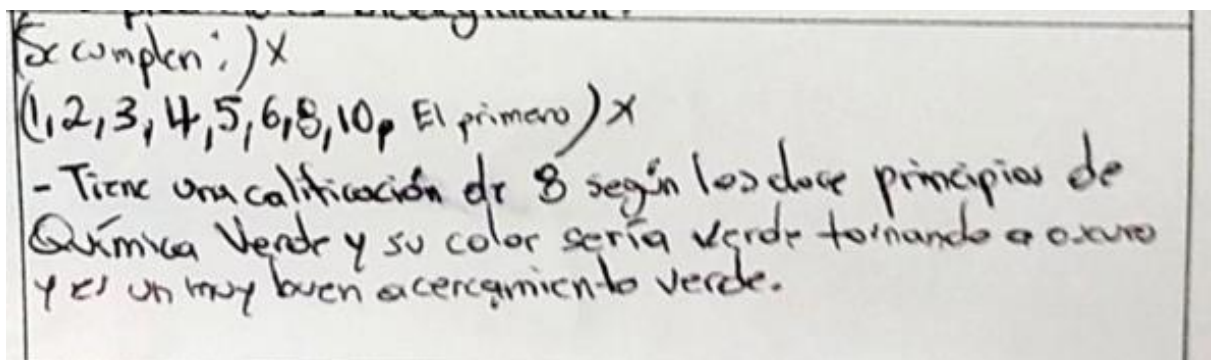 (Se cumplen:)X
(1,2,3,4,5,6,8,10, El primero)X
- Tiene una calificación de 8 según los doce principios de
Química Verde y su color sería verde tornando a oscuro
y es un muy buen acercamiento verde.